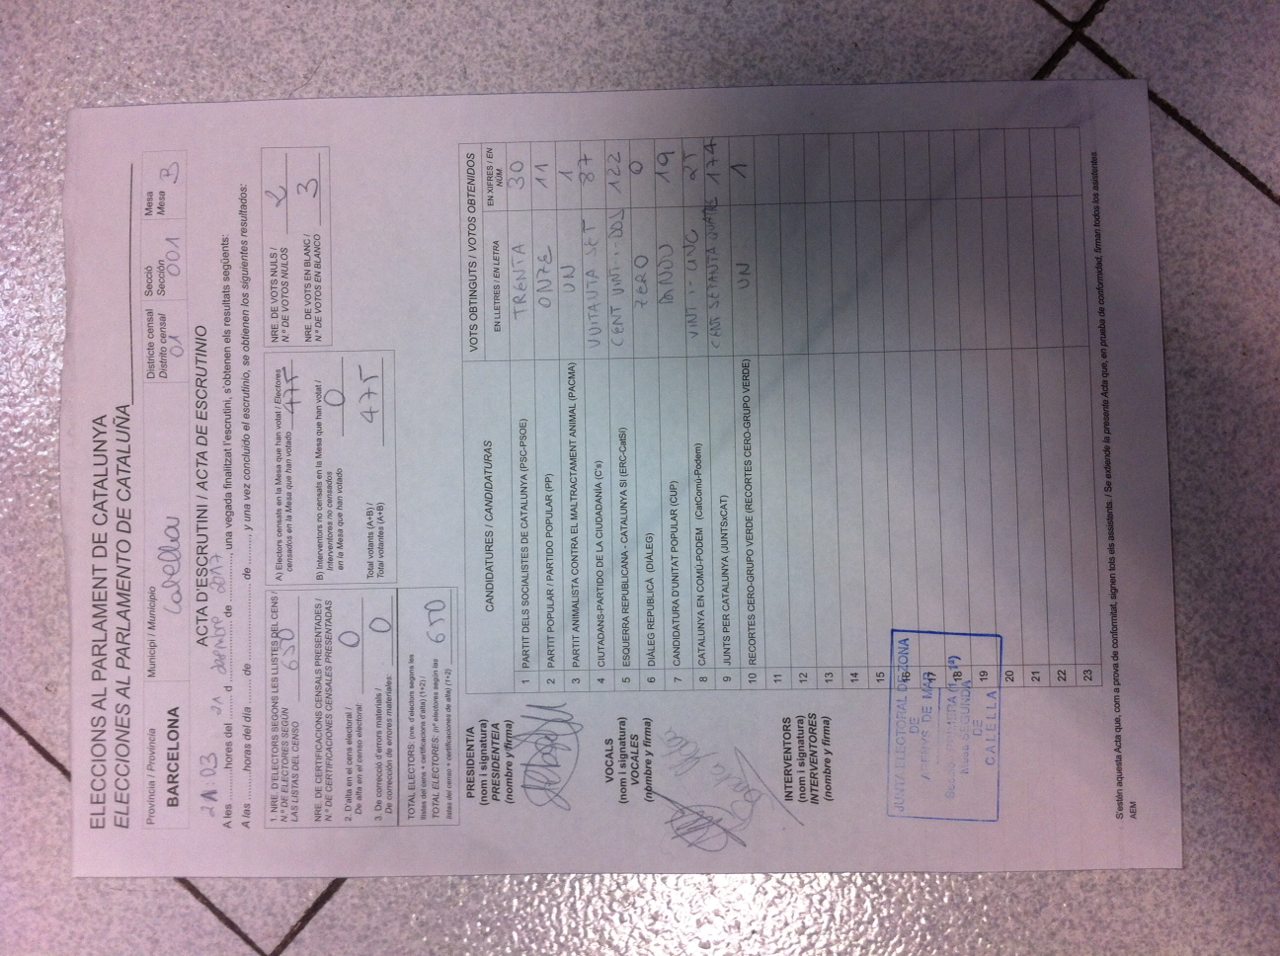 ELECCIONS AL PARLAMENT DE CATALUNYA
ELECCIONES AL PARLAMENTO DE CATALUÑA
Província / Provincia Municipi / Municipio Districte censal Secció Mesa
BARCELONA Calella Distrito censal Sección Mesa
01 001 B
ACTA D'ESCRUTINI / ACTA DE ESCRUTINIO
A les 21 03 hores del 21 d desembre de 2017, una vegada finalitzat l'escrutini, s'obtenen els resultats següents:
A las horas del día de de, y una vez concluido el escrutinio, se obtienen los siguientes resultados:
1. NRE. D'ELECTORS SEGONS LES LLISTES DEL CENS /
N.º DE ELECTORES SEGÚN
LAS LISTAS DEL CENSO 650
NRE. DE CERTIFICACIONS CENSALS PRESENTADES /
N.º DE CERTIFICACIONES CENSALES PRESENTADAS
2. D'alta en el cens electoral /
De alta en el censo electoral: 0
3. De correcció d'errors materials /
De corrección de errores materiales: 0
TOTAL ELECTORS: (nre. d'electors segons les
llistes del cens + certificacions d'alta) (1+2) /
TOTAL ELECTORES: (nº electores según las
listas del censo + certificaciones de alta) (1+2) 650
A) Electors censats en la Mesa que han votat / Electores
censados en la Mesa que han votado 475
B) Interventors no censats en la Mesa que han votat /
Interventores no censados
en la Mesa que han votado 0
Total votants (A+B) /
Total votantes (A+B) 475
NRE. DE VOTS NULS /
N.º DE VOTOS NULOS 2
NRE. DE VOTS EN BLANC /
N.º DE VOTOS EN BLANCO 3
CANDIDATURES / CANDIDATURAS VOTS OBTINGUTS / VOTOS OBTENIDOS
EN LLETRES / EN LETRA EN XIFRES / EN NÚM.
1 PARTIT DELS SOCIALISTES DE CATALUNYA (PSC-PSOE) TRENTA 30
2 PARTIT POPULAR / PARTIDO POPULAR (PP) ONZE 11
3 PARTIT ANIMALISTA CONTRA EL MALTRACTAMENT ANIMAL (PACMA) UN 1
4 CIUTADANS-PARTIDO DE LA CIUDADANÍA (C's) VUITANTA SET 87
5 ESQUERRA REPUBLICANA - CATALUNYA SI (ERC-CatSí) CENT VINT-I-DOS 122
6 DIÀLEG REPUBLICÀ (DIÀLEG) ZERO 0
7 CANDIDATURA D'UNITAT POPULAR (CUP) DINOU 19
8 CATALUNYA EN COMÚ-PODEM (CatComú-Podem) VINT-I-CINC 25
9 JUNTS PER CATALUNYA (JUNTSxCAT) CENT SETANTA QUATRE 174
10 RECORTES CERO-GRUPO VERDE (RECORTES CERO-GRUPO VERDE) UN 1
11
12
13
14
15
16
17
18
19
20
21
22
23
PRESIDENTIA
(nom i signatura)
PRESIDENTEIA
(nombre y firma)
VOCALS
(nom i signatura)
VOCALES
(nombre y firma)
INTERVENTORS
(nom i signatura)
INTERVENTORES
(nombre y firma)
JUNTA ELECTORAL DE ZONA
DE
ARENYS DE MAR
DE
CALELLA
S'estén aquesta Acta que, com a prova de conformitat, signen tots els assistents. / Se extiende la presente Acta que, en prueba de conformidad, firman todos los asistentes.
AEM